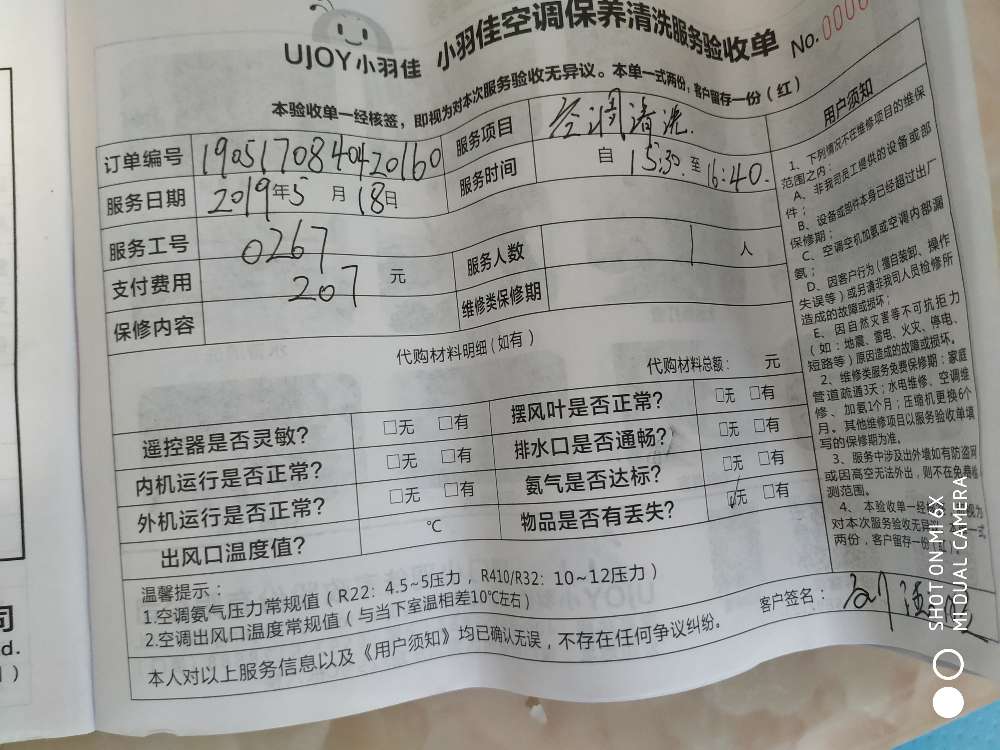 UJOY小羽佳 小羽佳空调保养清洗服务验收单 No.
本验收单一经核签，即视为对本次服务验收无异议。本单一式两份，客户留存一份（红）
订单编号 19051708404201​60 服务项目 空调清洗.
服务日期 2019年5月18日 服务时间 自15:30.至16:40.
服务工号 0267 服务人数 1人
支付费用 207元 维修类保修期
保修内容
代购材料明细（如有）
代购材料总额： 元
遥控器是否灵敏？ □无 □有 摆风叶是否正常？ □无 □有
内机运行是否正常？ □无 □有 排水口是否通畅？ □无 □有
外机运行是否正常？ □无 □有 氨气是否达标？ □无 □有
出风口温度值？ ℃ 物品是否有丢失？ ☑无 □有
温馨提示：
1.空调氨气压力常规值（R22：4.5~5压力，R410/R32：10~12压力）
2.空调出风口温度常规值（与当下室温相差10℃左右）
本人对以上服务信息以及《用户须知》均已确认无误，不存在任何争议纠纷。 客户签名：
用户须知
1、下列情况不在维修项目的维保
范围之内：
A、非我司员工提供的设备或部
件；
B、设备或部件本身已经超过出厂
保修期；
C、空调空机加氨或空调内部漏
氨；
D、因客户行为（擅自装卸、操作
失误等）或另请非我司人员检修所
造成的故障或损坏；
E、因自然灾害等不可抗拒力
（如：地震、雷电、火灾、停电、
短路等）原因造成的故障或损坏。
2、维修类服务免费保修期：家庭
管道疏通3天；水电维修、空调维
修、加氨1个月；压缩机更换6个
月。其他维修项目以服务验收单填
写的保修期为准。
3、服务中涉及出外墙如有防盗网
或因高空无法外出，则不在免费检
测范围。
4、本验收单一经核 视为
对本次服务验收无异 一式
两份，客户留存一份（红）
司
d.
）
SHOT ON MI 6X
MI DUAL CAMERA